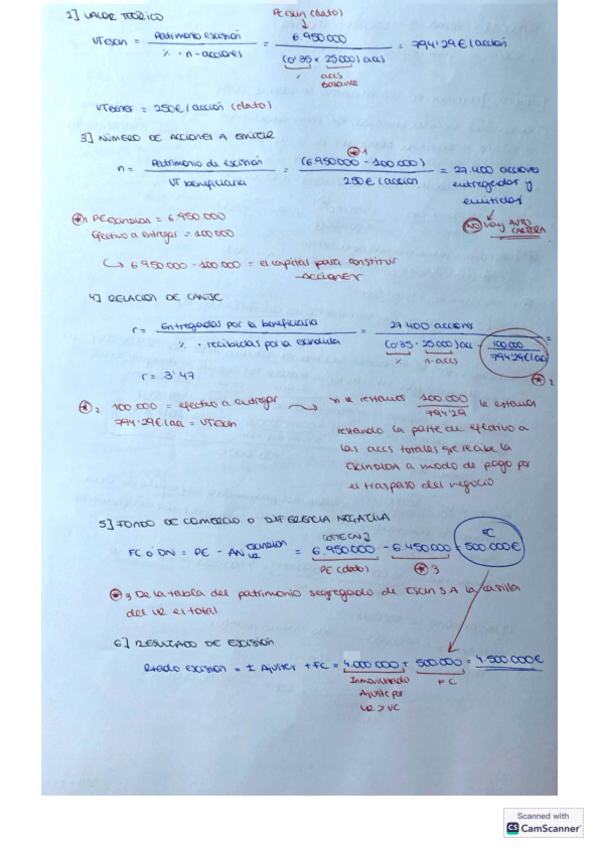 2] VALOR TEÓRICO
PEscin (dato)
VTescin = Patrimonio escisión / % · nº acciones = 6.950.000 / (0'35 · 25000) accs = 794'29€/acción
%
accs
Balance
VTbenef = 250€/acción (dato)
3] NÚMERO DE ACCIONES A EMITIR
n = Patrimonio de escisión / VT beneficiaria = (6.950.000 - 100.000) *1 / 250€/acción = 27.400 acciones
entregadas y
emitidas
*1 PEscindida = 6.950.000
Efectivo a entregar = 100.000
NO hay AUTO
CARTERA
↳ 6.950.000 - 100.000 = el capital para constituir
acciones
4] RELACIÓN DE CANJE
r = Entregadas por la beneficiaria / % · recibidas por la escindida = 27.400 acciones / (0'35 · 25000) acc - 100.000 / 794'29€/acc =
% n-accs
*2
r = 3'47
*2 100.000 = efectivo a entregar
794'29€/acc = VTescin
→ si le restamos 100.000 / 794'29 le estamos
restando la parte de efectivo a
las accs totales que recibe la
ESCINDIDA a modo de pago por
el traspaso del negocio
5] FONDO DE COMERCIO O DIFERENCIA NEGATIVA
FC ó DN = PE - AN escindida VR = 6.950.000 - 6.450.000 = 500.000€
FC
PE (dato)
*3
*3 De la tabla del patrimonio segregado de ESCIN S.A la casilla
del VR el total
6] RESULTADO DE ESCISIÓN
Rtado escisión = ± Ajustes + FC = 4.000.000 + 500.000 = 4.500.000€
Inmovilizado
FC
Ajuste por
VR > VC
Scanned with
CS CamScanner